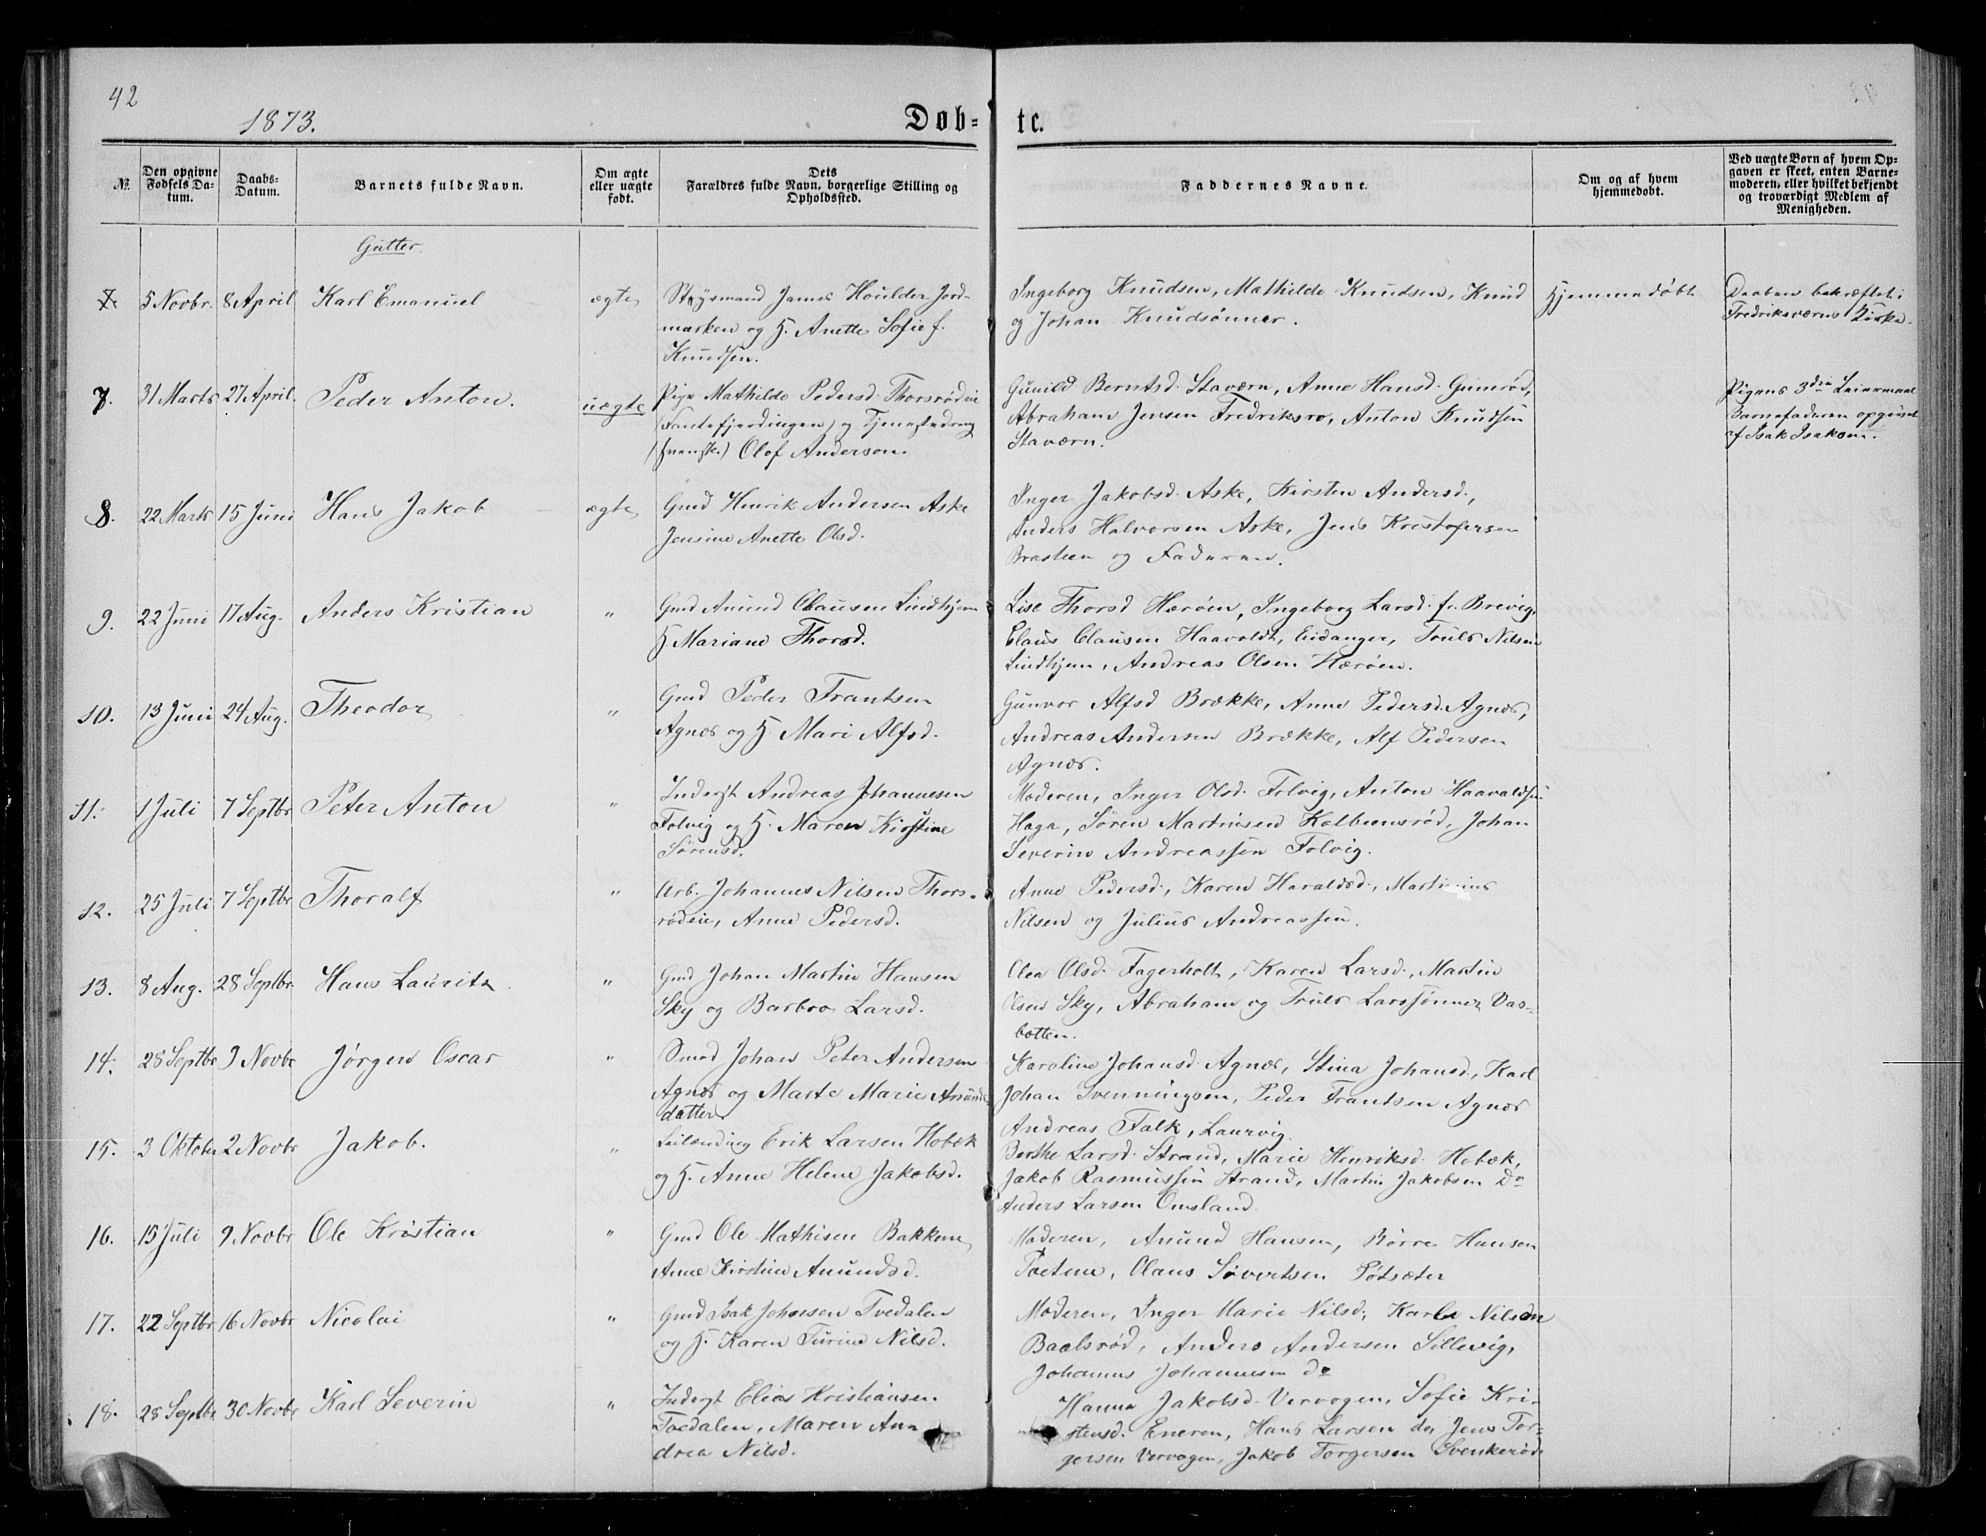 42
1873.
Døb- te.
№
Den opgivne Fødsels Da- tum.
Daabs- Datum.
Barnets fulde Navn.
Om ægte eller uægte født.
Dets Forældres fulde Navn, borgerlige Stilling og Opholdssted.
Faddernes Navne.
Om og af hvem hjemmedøbt.
Ved uægte Børn af hvem Op- gaven er skeet, enten Barne- moderen, eller hvilket bekjendt og troværdigt Medlem af Menigheden.
Gutter.
5 Novbr. 8 April Karl Emanuel ægte Styrmand James Houlder Jord- Ingeborg Knudsen, Mathilde Knudsen, Knud Hjemmedøbt Daaben bekræftet i
marken og H. Anette Sofie f. og Johan Knudsønner. Fredriksværns Kirke.
Knudsen.
7. 31 Marts 27 April. Peder Anton. uægte Pige Mathilde Pedersd. Thorsrødeie Gunild Berntsd. Staværn, Anne Hansd. Gumrød, Pigens 3die Leiermaal
og Tjenestedreng Abraham Jensen Fredriksro, Anton Knudsen Barnefaderen opgivet
(svensk) Olof Anderson. Staværn. af Isak Isaksen.
8. 22 Marts 15 Juni Hans Jakob ægte Gmd Henrik Andersen Aske Inger Jakobsd. Aske, Kirsten Andersd.,
Jensine Anette Olsd. Anders Halvorsen Aske, Jens Kristofersen
og Faderen.
9. 22 Juni 17 Aug. Anders Kristian " Gmd Amund Clausen Lindhjem Lise Thorsd Hærøen, Ingeborg Larsd. fr. Brevig,
H Mariane Thorsd. Claus Clausen Haavoldt, Eidanger, Truls Nilsen
Lindhjem, Andreas Olsen Hærøen.
10. 13 Juni 24 Aug. Theodor " Gmd Peder Frantsen Gunvor Alfsd Brække, Anne Pedersd. Agnæs,
Agnæs og H. Mari Alfsd. Andreas Andersen Brække, Alf Pedersen
Agnæs.
11. 1 Juli 7 Septbr Peter Anton " Inderst Andreas Johannesen Moderen, Inger Olsd. Folvig, Anton Haavaldsen
Folvig og H. Maren Kirstine Haga, Søren Martinsen Kolbeensrød, Johan
Sørensd. Severin Andreassen Folvig.
12. 25 Juli 7 Septbr Thoralf " Arb. Johannes Nilsen Thors- Anne Pedersd., Karen Haraldsd., Martinius
rødeie, Anne Pedersd. Nilsen og Julius Andreassen.
13. 8 Aug. 28 Septbr Hans Lauritz " Gmd Johan Martin Hansen Olea Olsd. Fagerholt, Karen Larsd., Martin
Sky og Barbro Larsd. Olsen Sky, Abraham og Truls Larssønner Vas-
botten.
14. 28 Septbr 9 Novbr Jørgen Oscar " Smed Johan Peter Andersen Karoline Johansd. Agnæs, Stina Johansd., Karl
Agnæs og Marte Marie Amunds- Johan Svenningsen, Peder Frantsen Agnæs
datter Andreas Falk, Laurvig.
15. 3 Oktober 2 Novbr Jakob. " Leilænding Erik Larsen Hobæk Berthe Larsd. Strand, Marie Henriksd. Hobæk,
og H. Anne Helene Jakobsd. Jakob Rasmussen Strand, Martin Jakobsen Do
Anders Larsen Omsland.
16. 15 Juli 9 Novbr Ole Kristian " Gmd Ole Mathisen Bakkene Moderen, Amund Hansen, Børre Hansen
Anne Kirstine Amundsd. Tvetene, Claus Sivertsen Pøtsæter
17. 22 Septbr 16 Novbr Nicolai " Gmd Isak Johnsen Tvedalen Moderen, Inger Marie Nilsd., Karl Nilsen
og H. Karen Turine Nilsd. Baalsrød, Anders Andersen Sillevig,
Johannes Johannesen Do
18. 28 Septbr 30 Novbr Karl Severin " Inderst Elias Kristiansen Hanna Jakobsd. Vervogen, Sofie Kri-
Tvedalen, Maren An- stensd. Eneren, Hans Larsen do, Jens Tor-
drea Nilsd. gersen Vervogen, Jakob Torgersen Svenkerød